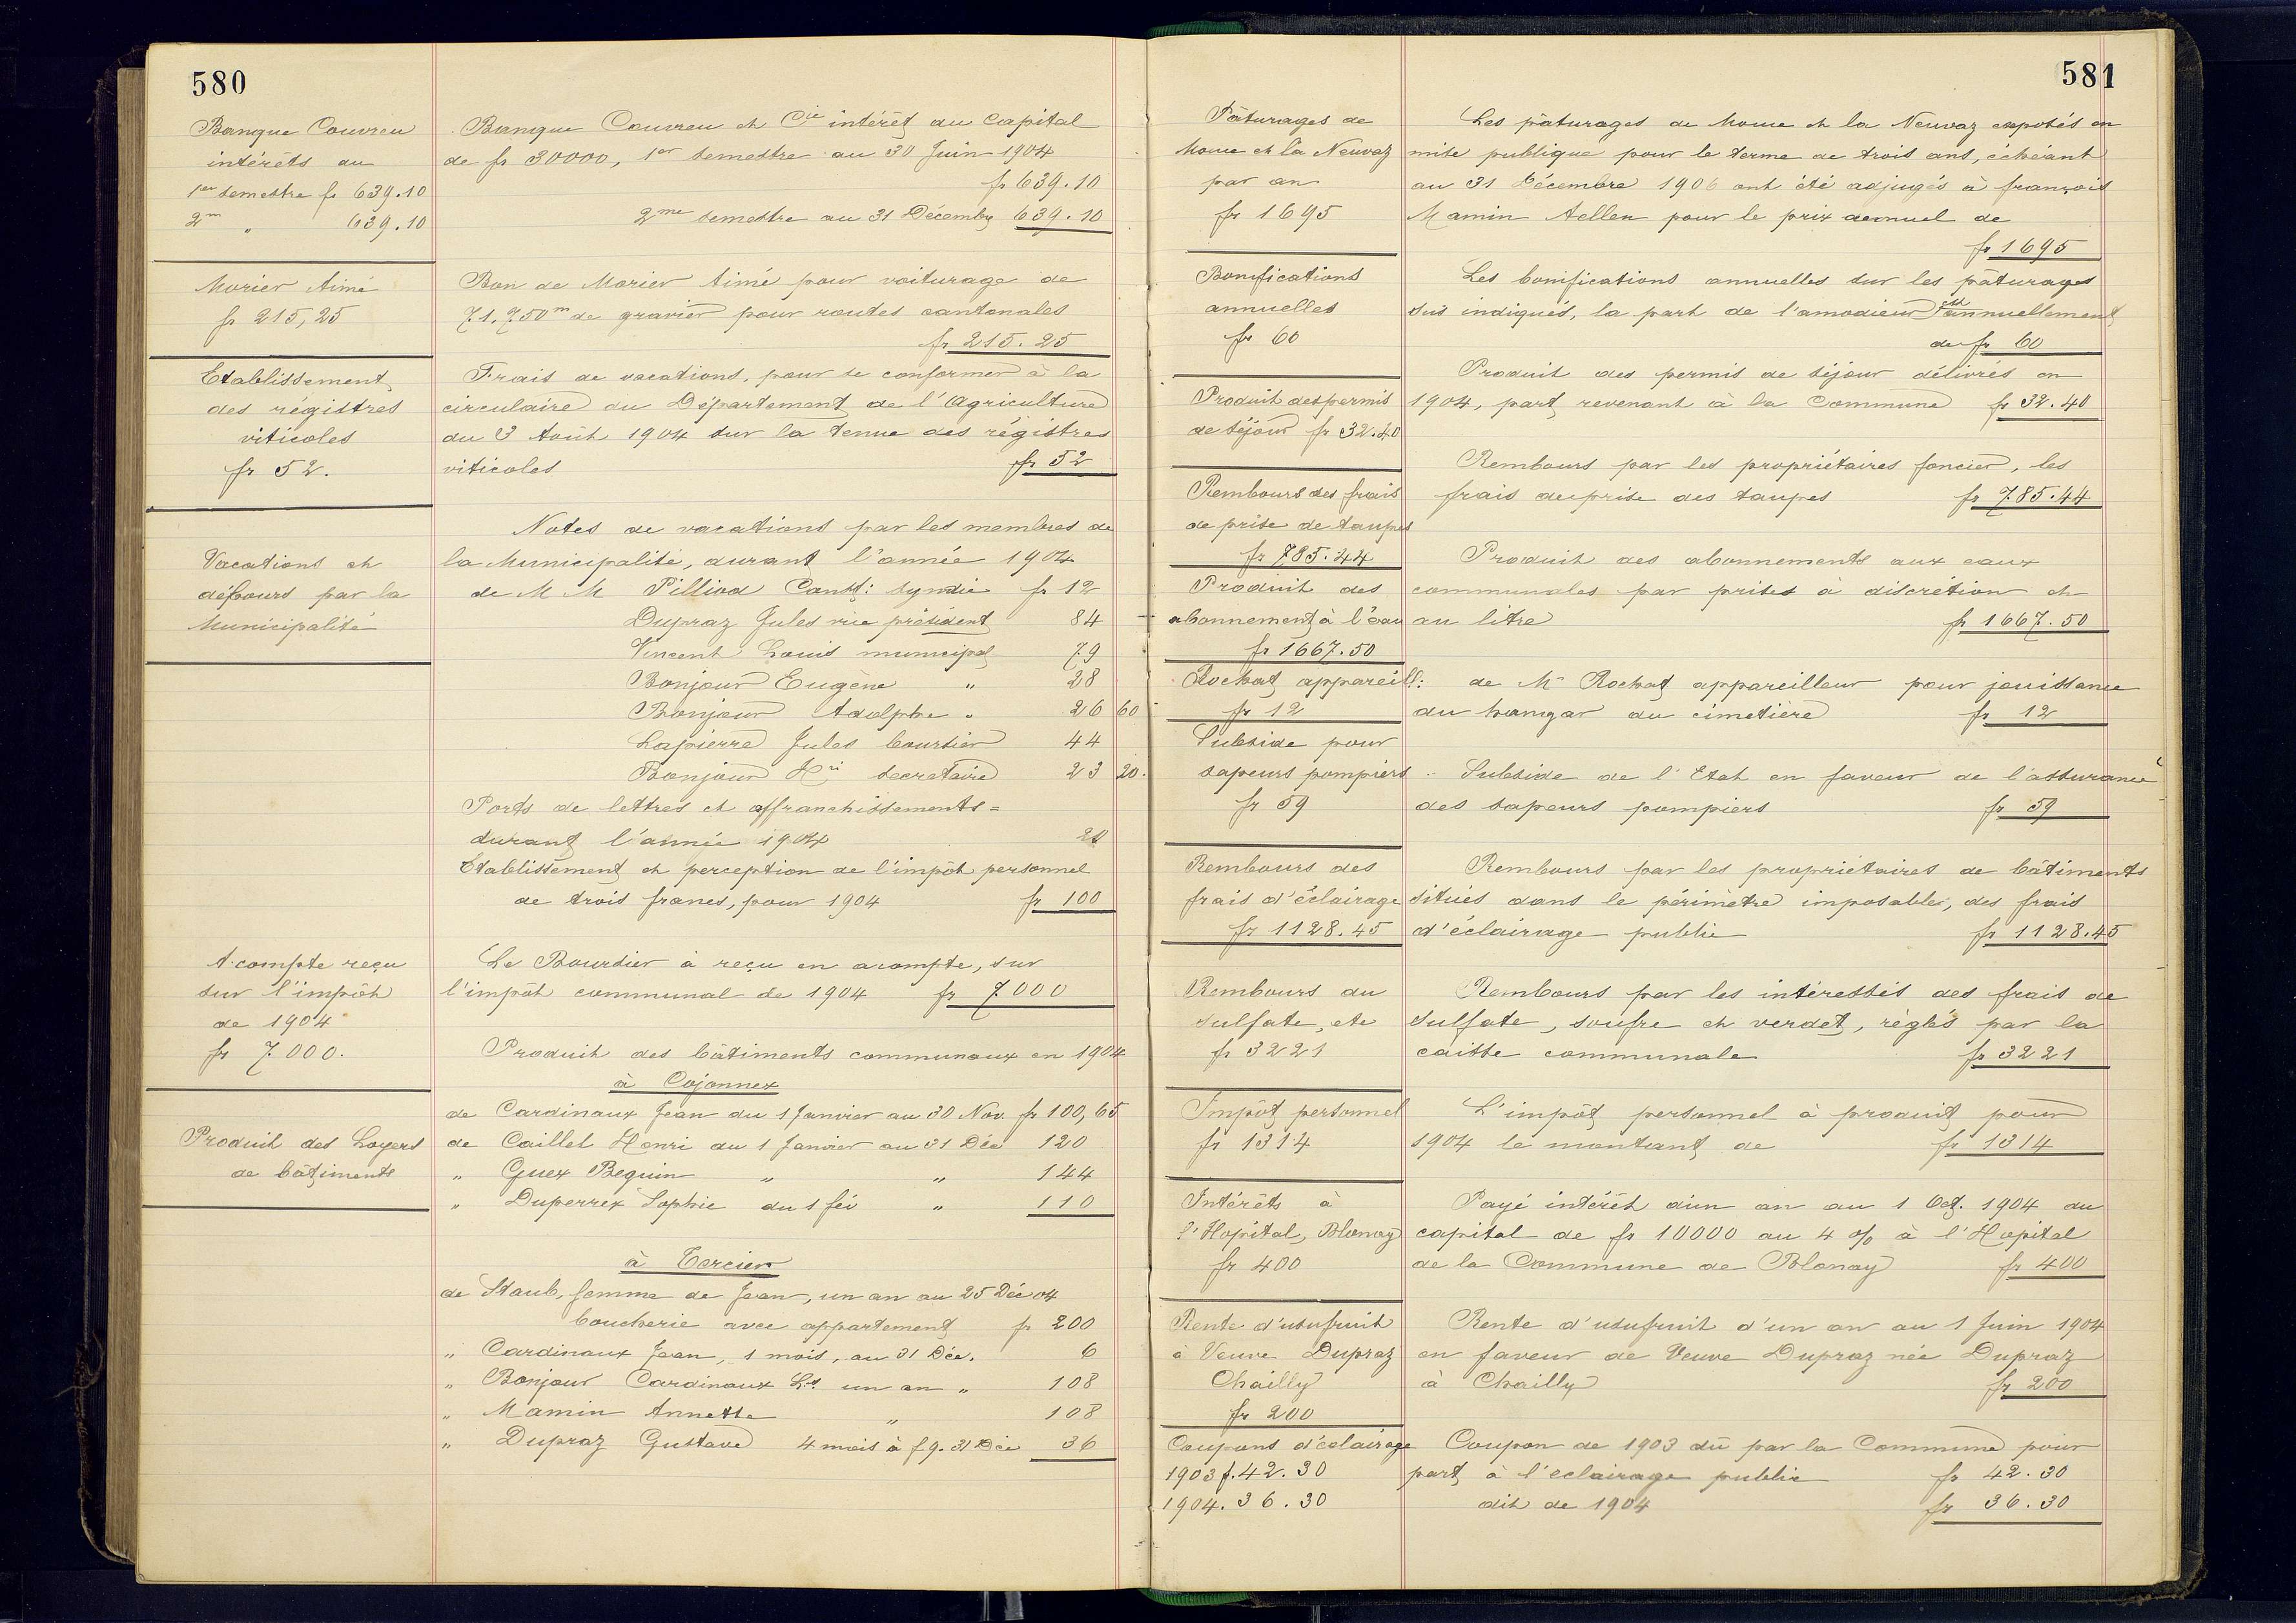 580
Banque Couvreu
intérêts au
1er semestre fr 639.10
2m " 639.10
Banque Couvreu et Cie intérêt du Capital
de fr 30000, 1er semestre au 30 Juin 1904
fr 639.10
2me semestre au 31 Décembre 639.10
Morier Aimé
fr 215,25
Bon de Morier Aimé pour voiturage de
71.750m de gravier pour routes cantonales
fr 215.25
Etablissement
des régistres
viticoles
fr 52.
Frais de vacations, pour se conformer à la
circulaire du Département de l'Agriculture
du 3 Août 1904 sur la tenue des régistres
viticoles fr 52
Vacations et
débours par la
Municipalité
Notes de vacations par les membres de
la Municipalité, durant l'année 1904
de M M Pilliod Const: syndic fr 12
Dupraz Jules vice président 84
Vincent Louis municipal 79
Bonjour Eugène " 28
Bonjour Adolphe " 26 60
Lapierre Jules boursier 44
Bonjour Hri secretaire 23 20.
Ports de lettres et affranchissements =
durant l'année 1904
Etablissement et perception de l'impôt personnel
de trois francs, pour 1904 fr 100
A compte reçu
sur l'impôt
de 1904
fr 7000.
Le Boursier à reçu en acompte, sur
l'impôt communal de 1904 fr 7000
Produit des Loyers
de bâtiments
Produit des bâtiments communaux en 1904
à Cojonnex
de Cardinaux Jean du 1 Janvier au 30 Nov. fr 100,65
de Caillet Henri du 1 Janvier au 31 Déc 120
" Guex Beguin " " 144
" Duperrex Sophie du 1 fév " 110
à Tercier
de Staub, femme de Jean, un an au 25 Déc 04
boucherie avec appartement fr 200
" Cardinaux Jean, 1 mois, au 31 Déc. 6
" Bonjour Cardinaux Ls un an " 108
" Mamin Annette " 108
" Dupraz Gustave 4 mois à f 9. 31 Déc 36
581
Pâturages de
et la Neuvaz
par an
fr 1695
Les pâturages de et la Neuvaz exposés en
mise publique pour le terme de trois ans, échéant
au 31 Décembre 1906 ont été adjugés à françois
Mamin Aellen pour le prix annuel de
fr 1695
Bonifications
annuelles
fr 60
Les bonifications annuelles sur les pâturages
sus indiqués, la part de l'amodieur est annuellement
de fr 60
Produit des permis
de séjour fr 32.40
Produit des permis de séjour délivrés en
1904, part revenant à la Commune fr 32.40
Rembours des frais
de prise de taupes
fr 785.44
Rembours par les propriétaires foncier, les
frais de prise des taupes fr 785.44
Produit des
abonnement à l'eau
fr 1667.50
Produit des abonnements aux eaux
communales par prises à discrétion et
au litre fr 1667.50
Rochat appareill:
fr 12
de Mr Rochat appareilleur pour jouissance
du hangar du cimetière fr 12
Subside pour
sapeurs pompiers
fr 59
Subside de l'Etat en faveur de l'assurance
des sapeurs pompiers fr 59
Rembours des
frais d'éclairage
fr 1128.45
Rembours par les propriétaires de bâtiments
situés dans le périmètre imposable, des frais
d'éclairage public fr 1128.45
Rembours du
sulfate, etc
fr 3221
Rembours par les intéressés des frais de
sulfate, soufre et verdet, règlés par la
caisse communale fr 3221
Impôt personnel
fr 1314
L'impôt personnel à produit pour
1904 le montant de fr 1314
Intérêts à
l'Hopital, Blonay
fr 400
Payé intérêt d'un an au 1 Oct. 1904 du
capital de fr 10000 au 4 % à l'Hopital
de la Commune de Blonay fr 400
Rente d'usufruit
à Veuve Dupraz
Chailly
fr 200
Rente d'usufruit d'un an au 1 Juin 1904
en faveur de Veuve Dupraz née Dupraz
à Chailly fr 200
Coupons d'éclairage
1903 f. 42.30
1904. 36.30
Coupon de 1903 dû par la Commune pour
part à l'eclairage public fr 42.30
dit de 1904 fr 36.30